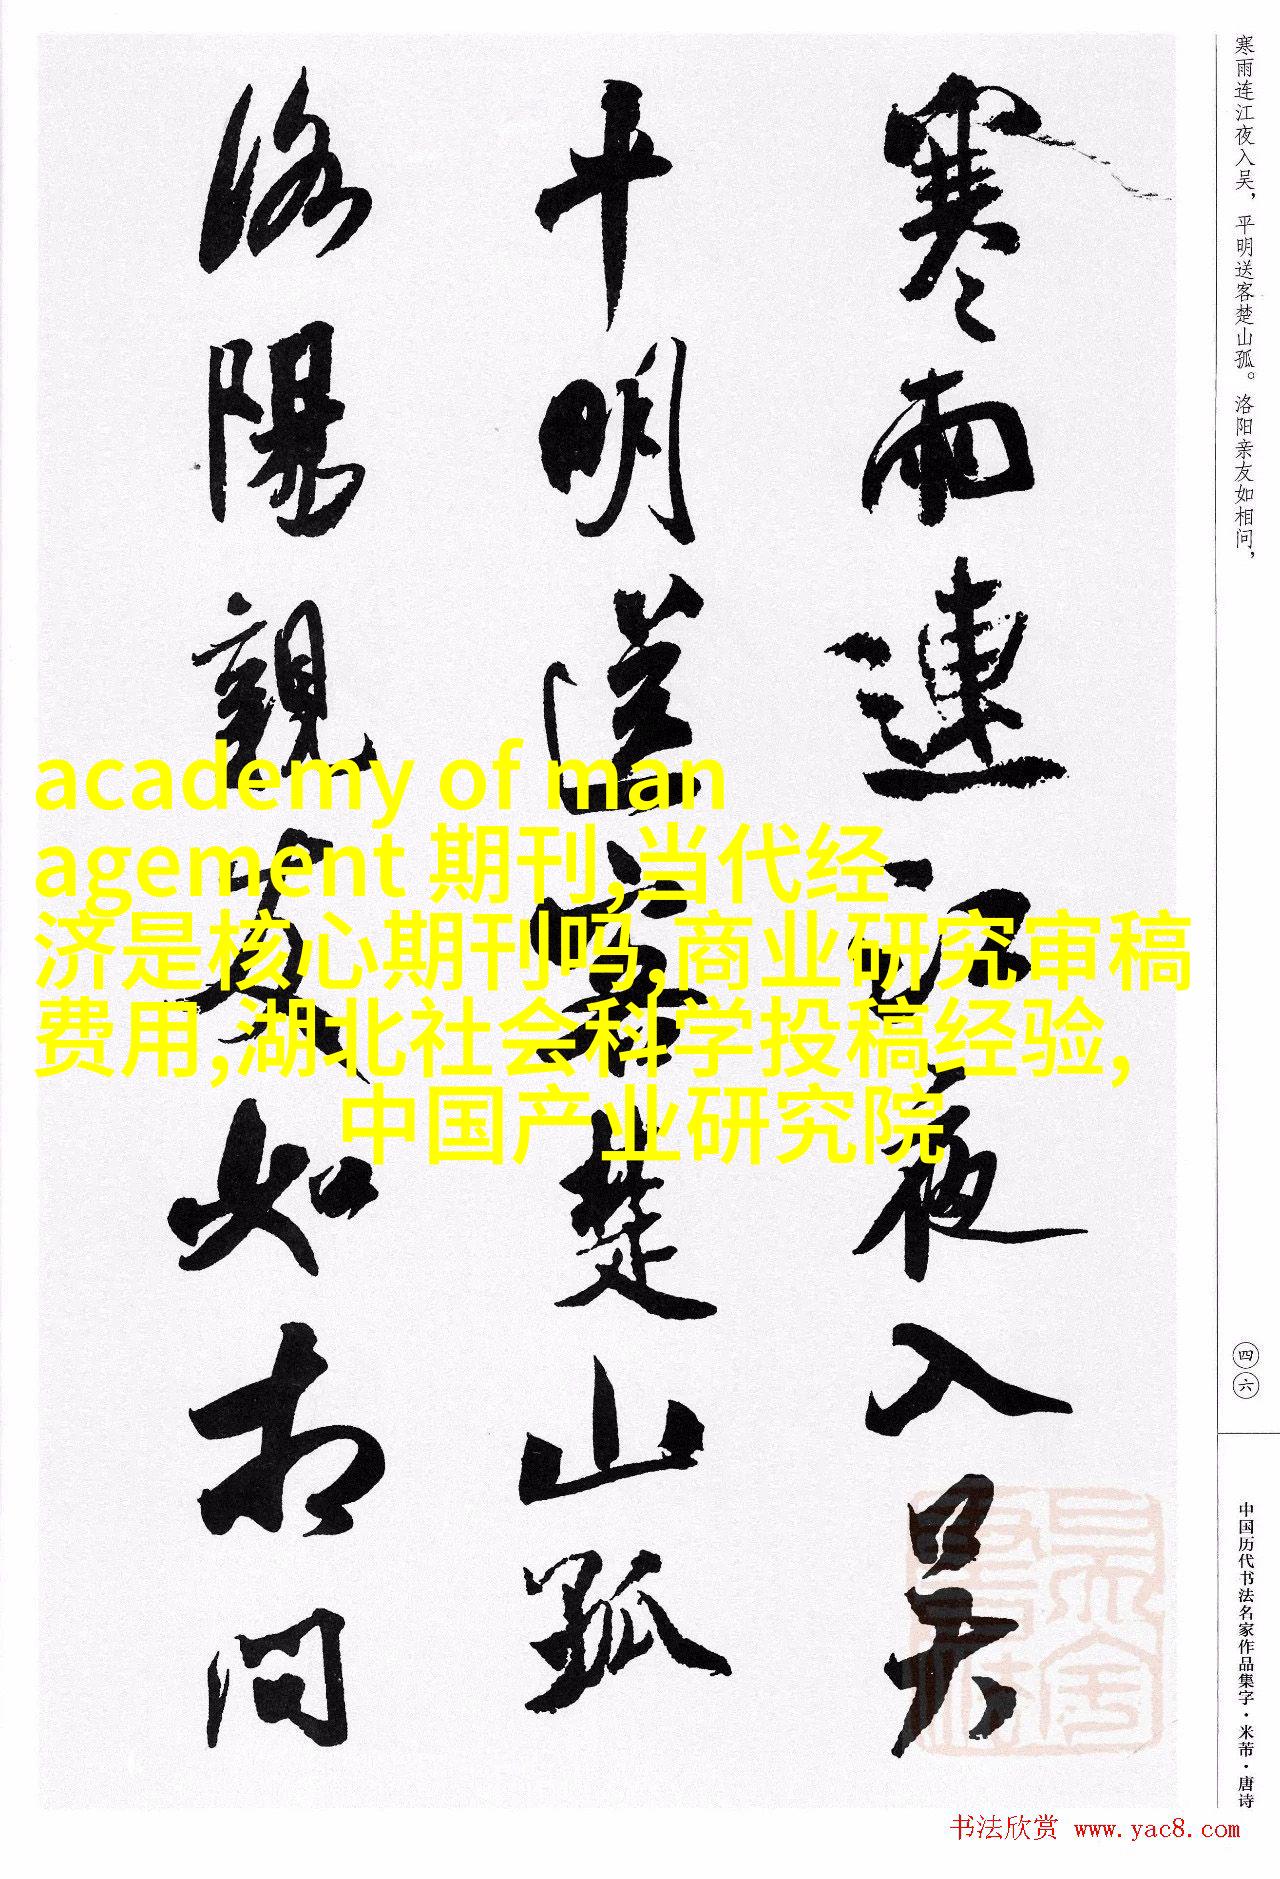 寒雨连江夜入吴，平明送客楚山孤。洛阳亲友如相问，
寒雨連江夜入吴
平明送客楚山孤
洛陽親友如相问
academy of man
agement 期刊,当代经
济是核心期刊吗,商业研究审稿
费用,湖北社会科学投稿经验,
中国产业研究院
四六
中国历代书法名家作品集字·米芾·唐诗
书法欣赏 www.yac8.com